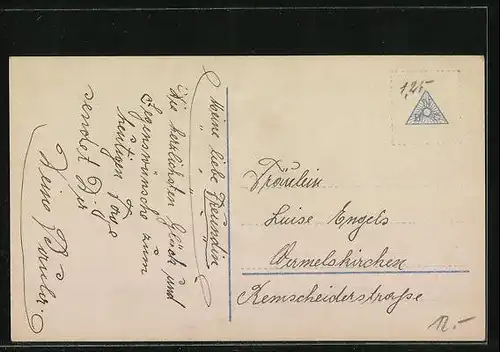 Meine liebe Freundin
Die herzlichsten Glück und
Segenswünsche zum
heutigen Tage
sendet Dir
1,25
Fräulein
Luise Engels
Wermelskirchen
Remscheiderstraße
12.-